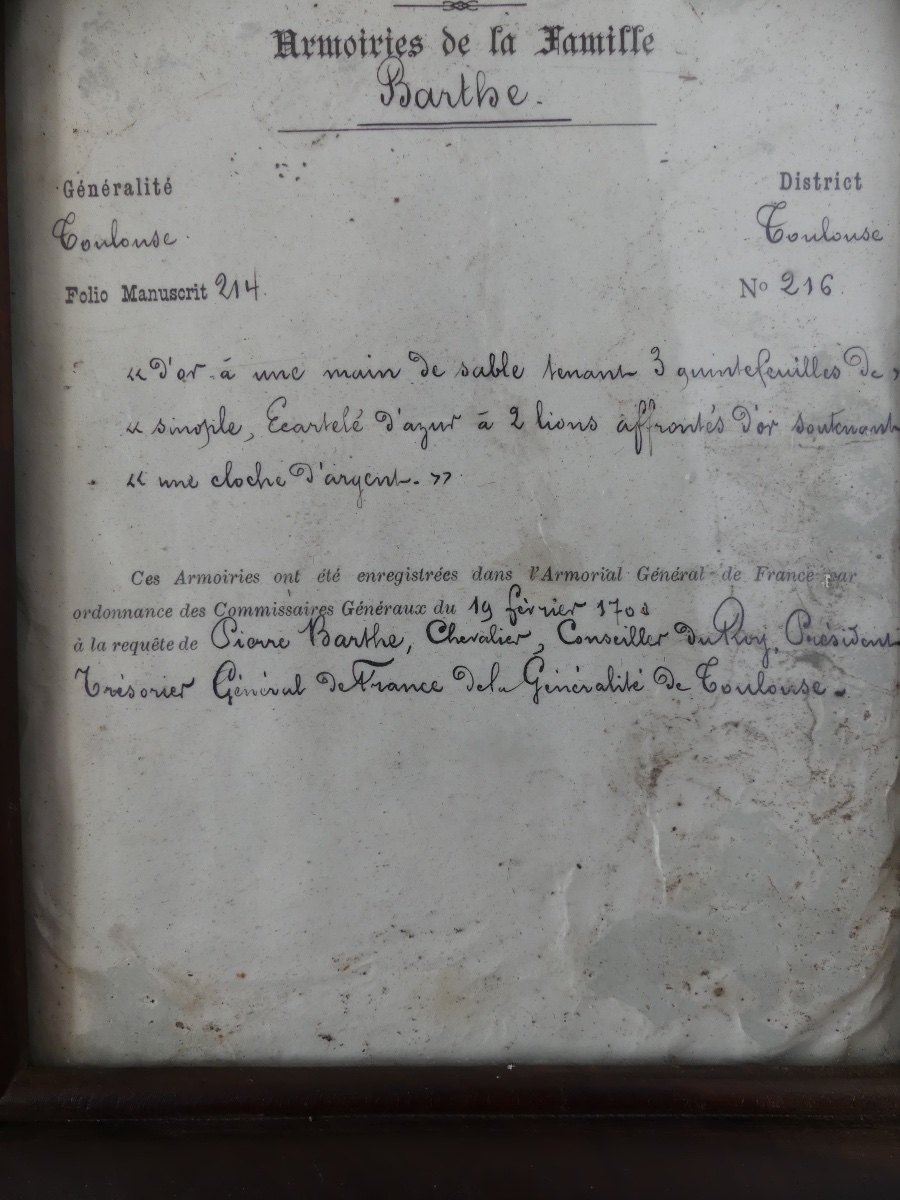 Armoiries de la Famille
Barthe.
Généralité
District
Toulouse
Toulouse
Folio Manuscrit 214.
Nº 216.
« d'or à une main de sable tenant 3 quintefeuilles de »
« sinople, Ecartelé d'azur à 2 lions affrontés d'or soutenant
« une cloche d'argent. »
Ces Armoiries ont été enregistrées dans l'Armorial Général de France par
ordonnance des Commissaires Généraux du 19 février
à la requête de Pierre Barthe, Chevalier, Conseiller du Roy, Président
Trésorier Général de France de la Généralité de Toulouse.